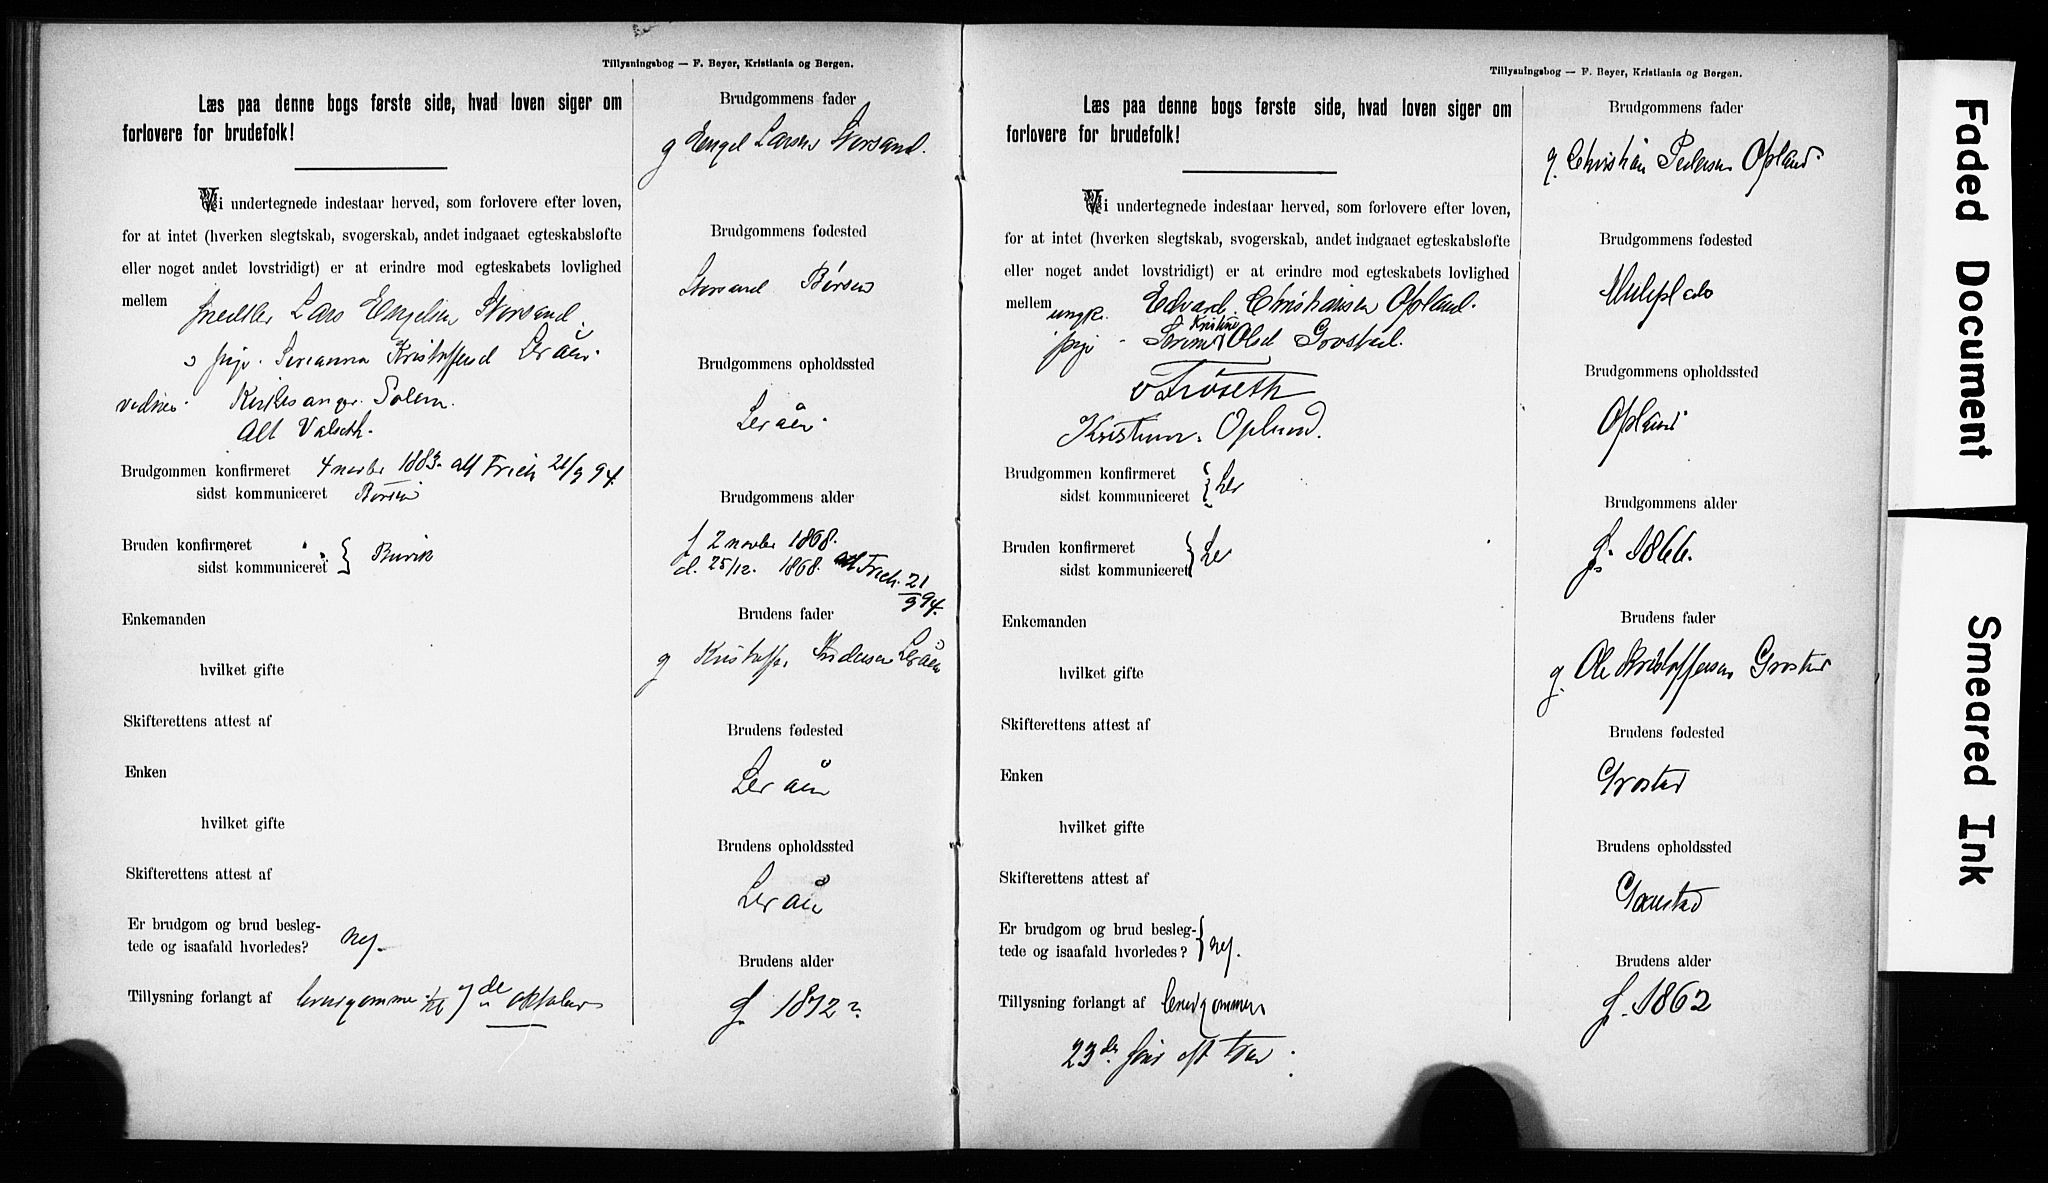 Tillysningsbog — F. Beyer, Kristiania og Bergen.
Læs paa denne bogs første side, hvad loven siger om
forlovere for brudefolk!
Vi undertegnede indestaar herved, som forlovere efter loven,
for at intet (hverken slegtskab, svogerskab, andet indgaaet egteskabsløfte
eller noget andet lovstridigt) er at erindre mod egteskabets lovlighed
mellem
Lars Engelsen Storsand.
pige. Serianna Kristoffersd Leråen.
Solem.
Alt Valseth.
Brudgommen konfirmeret 4 novbr 1883. att Frich 21/9 94.
sidst kommuniceret Børsen
Bruden konfirmeret
sidst kommuniceret } Buvik
Enkemanden
hvilket gifte
Skifterettens attest af
Enken
hvilket gifte
Skifterettens attest af
Er brudgom og brud besleg-
tede og isaafald hvorledes? nej.
Tillysning forlangt af brudgommen til 7de oktober
Brudgommens fader
g Engel Larsen Storsand.
Brudgommens fødested
Storsand Børsen
Brudgommens opholdssted
Leråen.
Brudgommens alder
f 2 novbr 1868.
d. 25/12. 1868. att Frich. 21/9 94.
Brudens fader
g Kristoffer Andersen Leråen
Brudens fødested
Leråen
Brudens opholdssted
Leråen
Brudens alder
f. 1872
Tillysningsbog — F. Beyer, Kristiania og Bergen.
Læs paa denne bogs første side, hvad loven siger om
forlovere for brudefolk!
Vi undertegnede indestaar herved, som forlovere efter loven,
for at intet (hverken slegtskab, svogerskab, andet indgaaet egteskabsløfte
eller noget andet lovstridigt) er at erindre mod egteskabets lovlighed
mellem ungk. Edvard Christiansen Opland.
Kristine
pige Olsd Grostad.
Frøseth
Oplund.
Brudgommen konfirmeret
sidst kommuniceret } Ler
Bruden konfirmeret
sidst kommuniceret } Ler
Enkemanden
hvilket gifte
Skifterettens attest af
Enken
hvilket gifte
Skifterettens attest af
Er brudgom og brud besleg-
tede og isaafald hvorledes? } nej.
Tillysning forlangt af brudgommen
23de
Brudgommens fader
g. Christian Pedersen Opland.
Brudgommens fødested
Brudgommens opholdssted
Opland
Brudgommens alder
f. 1866.
Brudens fader
g. Ole Kristoffersen Grostad
Brudens fødested
Grostad
Brudens opholdssted
Brudens alder
f. 1862
Faded Document
Smeared Ink